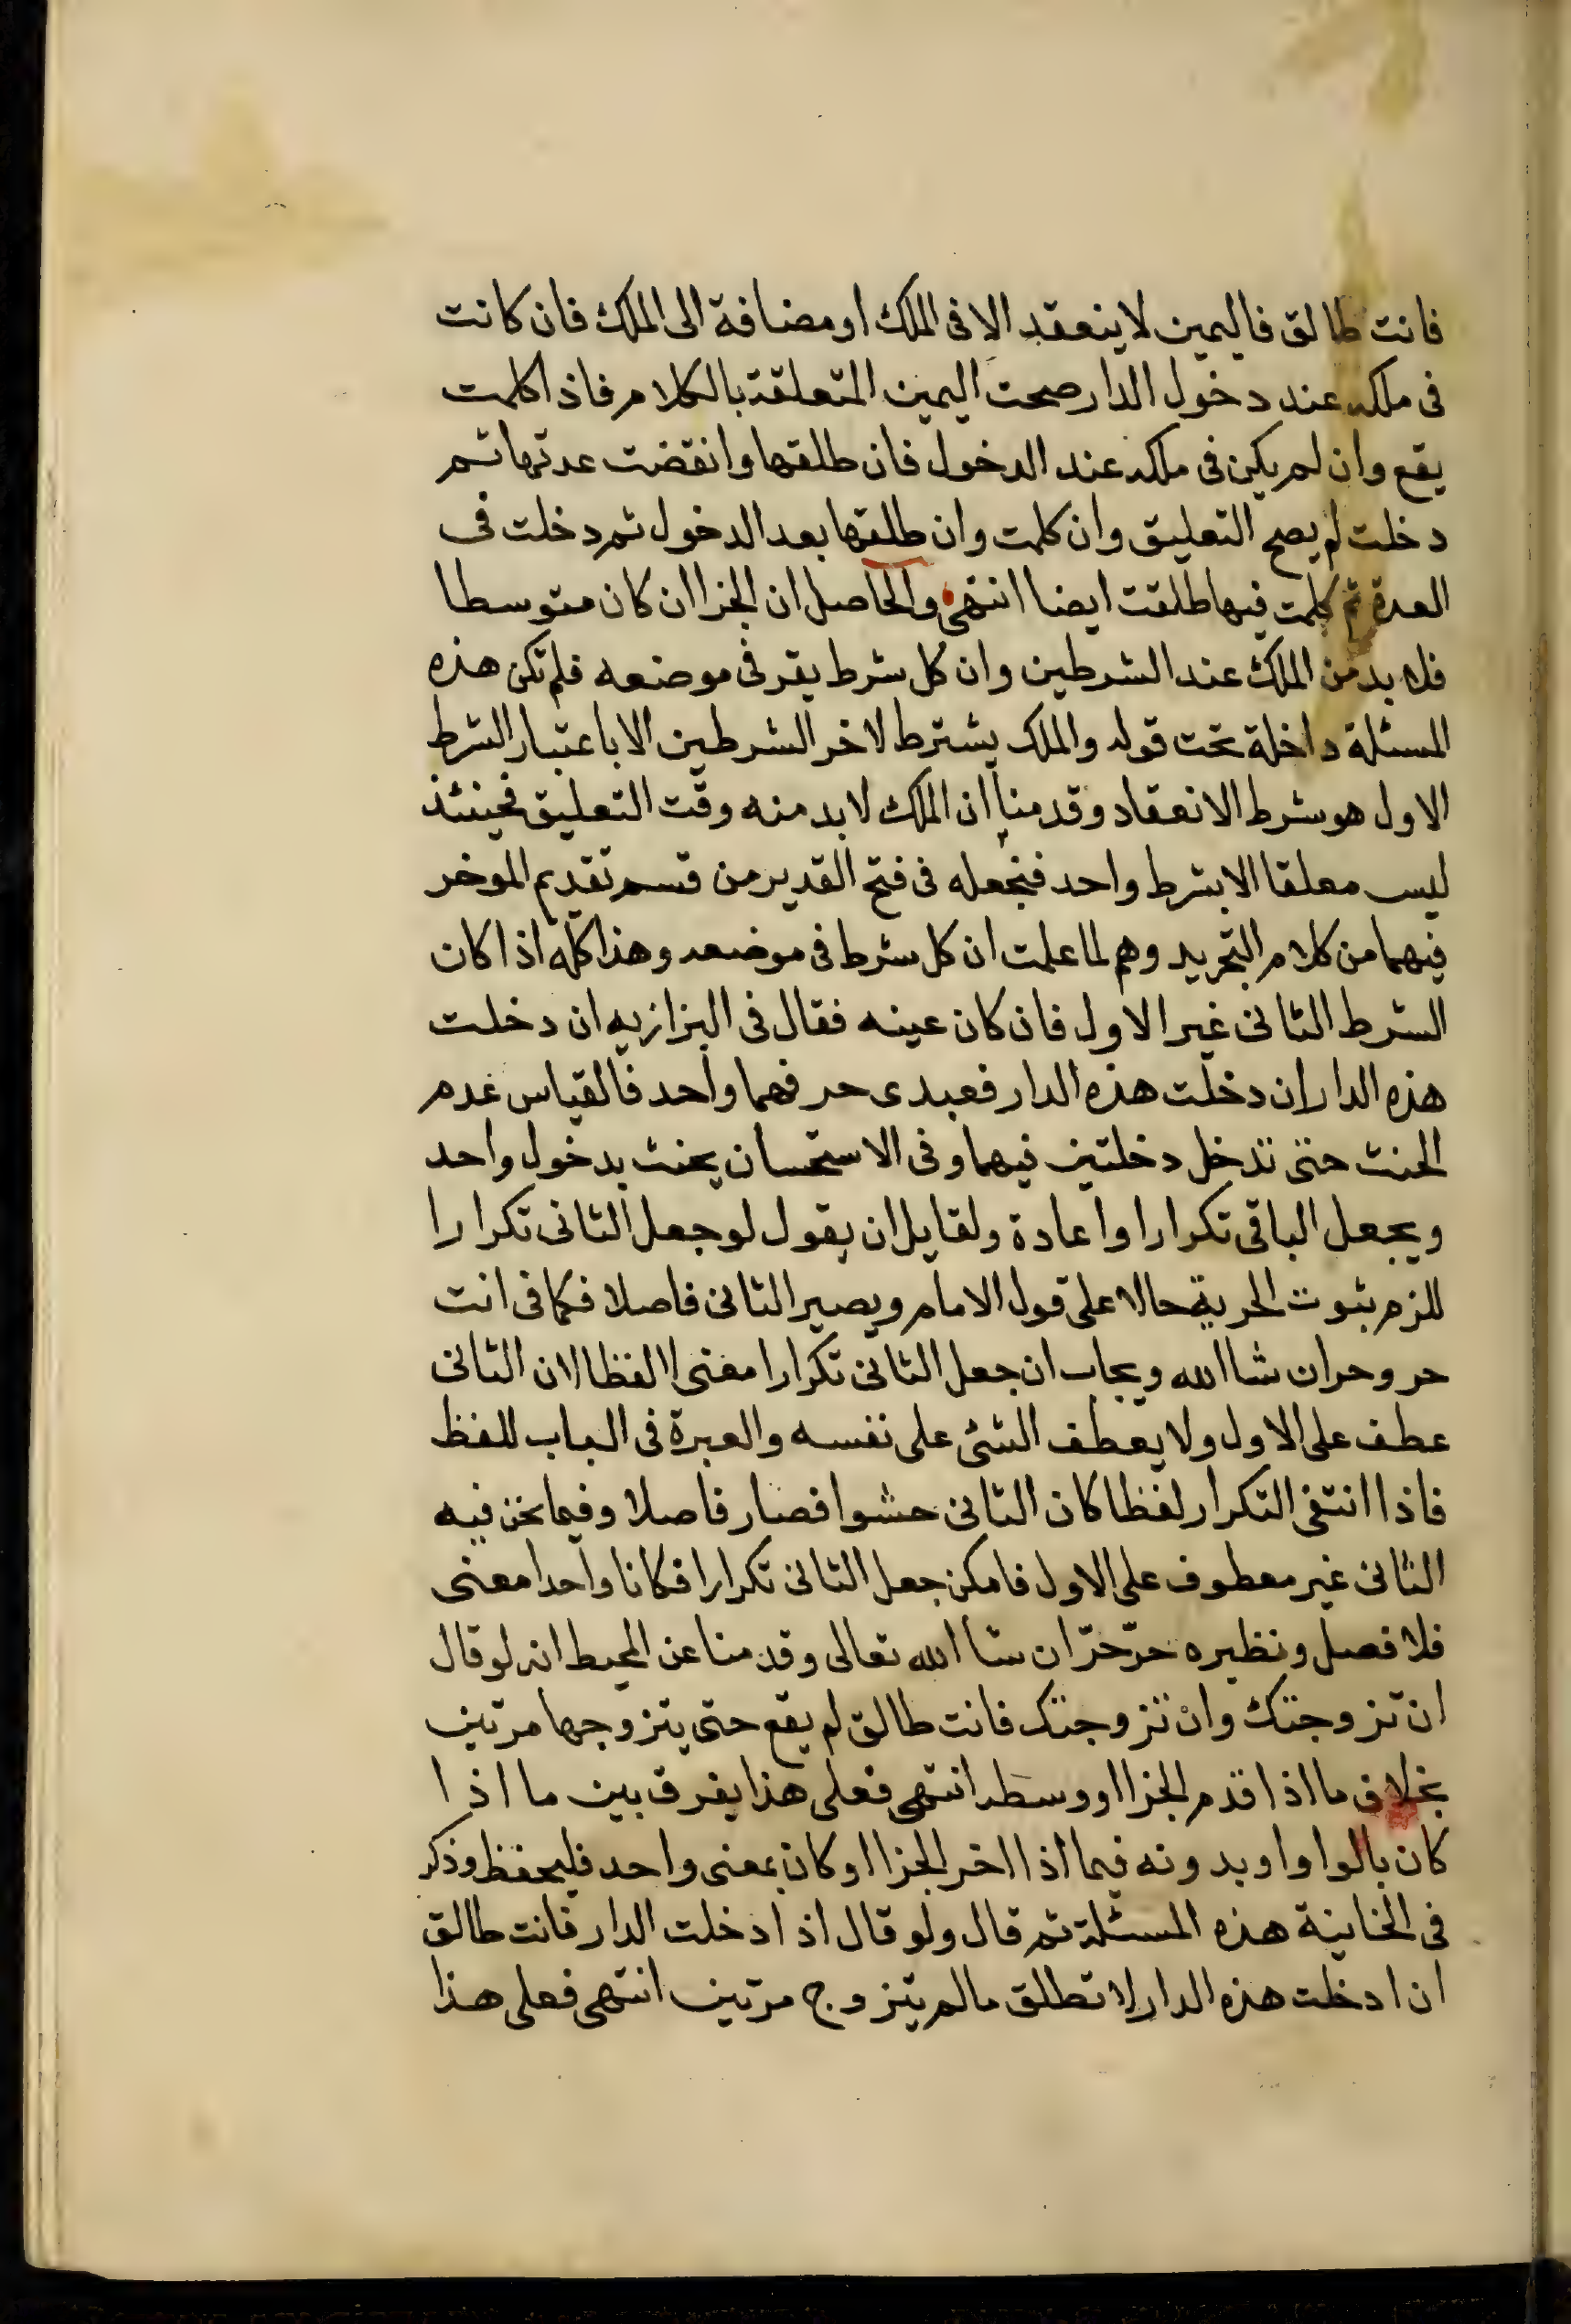 فانت طالق فاليمين لا ينعقد الا فى الملك او مضافة الى الملك فان كانت
فى ملكه عند دخول الدار صحت اليمين المتعلقة بالكلام فاذا كلمت
يقع وان لم يكن فى ملكه عند الدخول فان طلقها وانقضت عدتها ثم
دخلت لم يصح التعليق وان كلمت وان طلقها بعد الدخول ثم دخلت فى
العدة ثم كلمت فيها طلقت ايضا انتهى والحاصل ان الجزا ان كان متوسطا
فلا بد من الملك عند الشرطين وان كل شرط يقر فى موضعه فلم تكن هذه
المسئلة داخلة تحت قوله والملك يشترط لاخر الشرطين الا باعتبار الشرط
الاول هو شرط الانعقاد وقدمنا ان الملك لا بد منه وقت التعليق فحينئذ
ليس معلقا الا بشرط واحد فنجعله فى فتح القدير من قسم تقديم الموخر
فيهما من كلام التجريد وهم لما علمت ان كل شرط فى موضعه وهذا كله اذا كان
الشرط الثانى غير الاول فان كان عينه فقال فى البزازيه ان دخلت
هذه الدار ان دخلت هذه الدار فعبدى حر فهما واحد فالقياس عدم
الحنث حتى تدخل دخلتين فيهما وفى الاستحسان يحنث بدخول واحد
ويجعل الباقى تكرارا واعادة ولقايل ان يقول لو جعل الثانى تكرارا
للزم ثبوت الحرية حالا على قول الامام ويصير الثانى فاصلا فكما فى انت
حر وحر ان شا الله ويجاب ان جعل الثانى تكرارا معنى لا لفظا لان الثانى
عطف على الاول ولا يعطف الشئ على نفسه والعبرة فى الباب للفظ
فاذا انتفى التكرار لفظا كان الثانى حشوا فصار فاصلا وفيما نحن فيه
الثانى غير معطوف على الاول فامكن جعل الثانى تكرارا فكانا واحدا معنى
فلا فصل ونظيره حرّ حرّ ان شا الله تعالى وقدمنا عن المحيط انه لو قال
ان تزوجتك وان تزوجتك فانت طالق لم يقع حتى يتزوجها مرتين
بخلاف ما اذا قدم الجزا او وسطه انتهى فعلى هذا يفرق بين ما اذا
كان بالواو او بدونه فيما اذا اخر الجزا او كان بمعنى واحد فليحفظ وذكر
فى الخانية هذه المسئلة ثم قال ولو قال اذا دخلت الدار فانت طالق
ان ادخلت هذه الدار لا تطلق ما لم يتزوج مرتين انتهى فعلى هذا